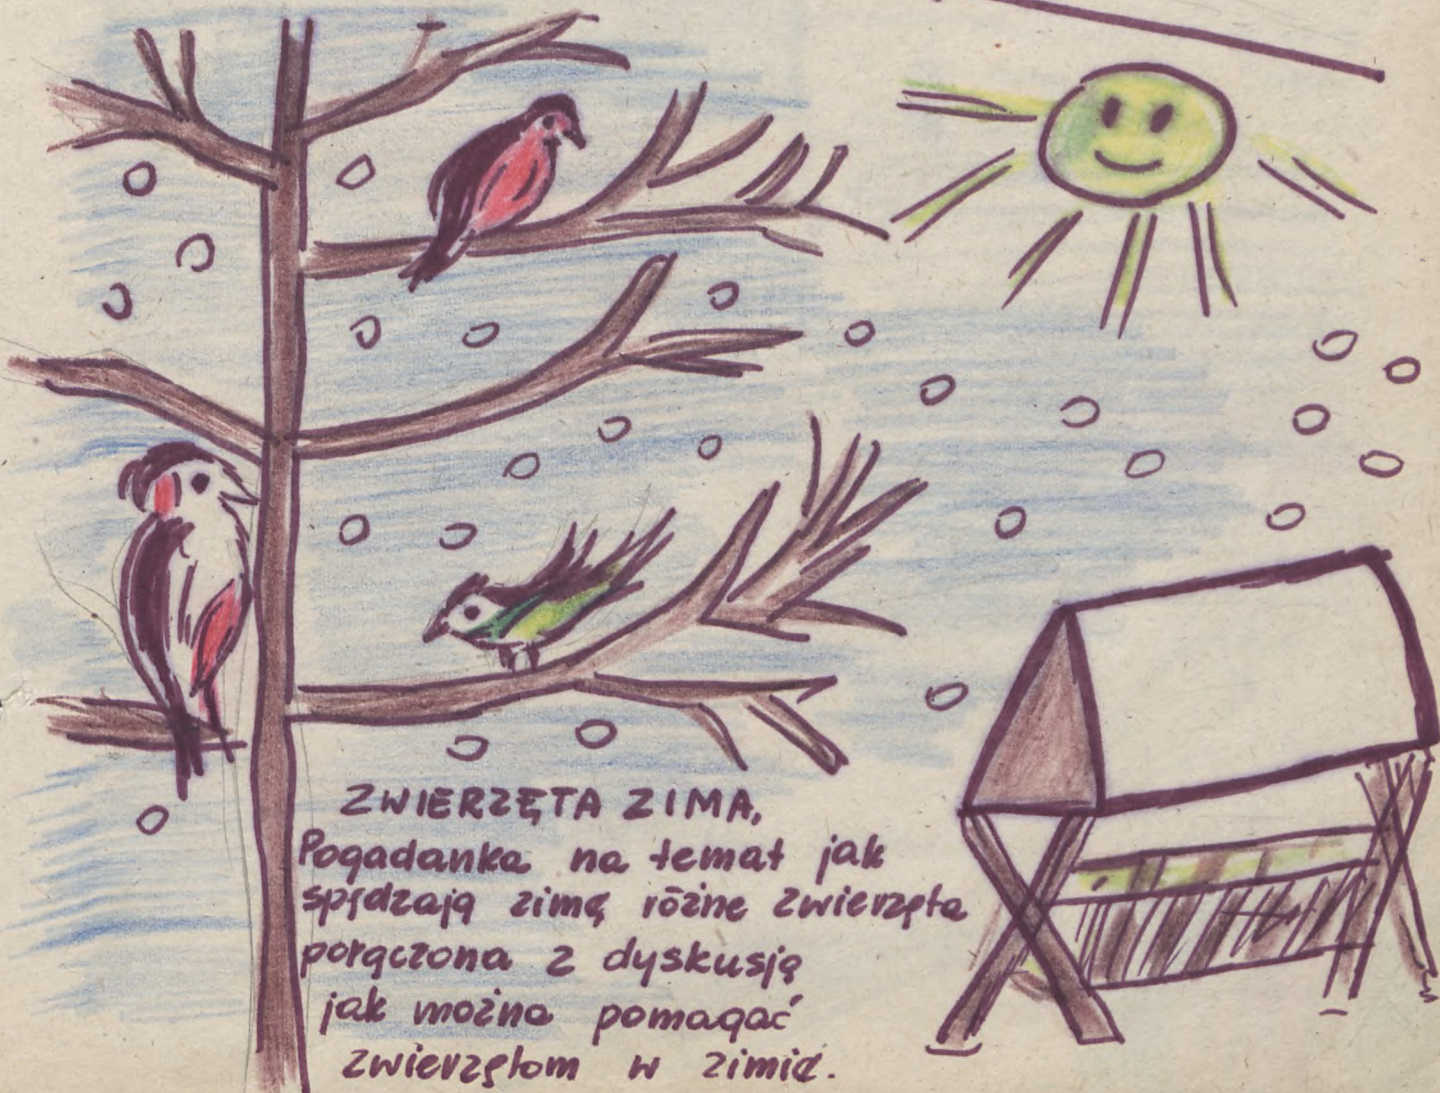 ZWIERZĘTA ZIMĄ,
Pogadanka na temat jak
spędzają zimę różne zwierzęta
połączona z dyskusją
jak można pomagać
zwierzętom w zimie.